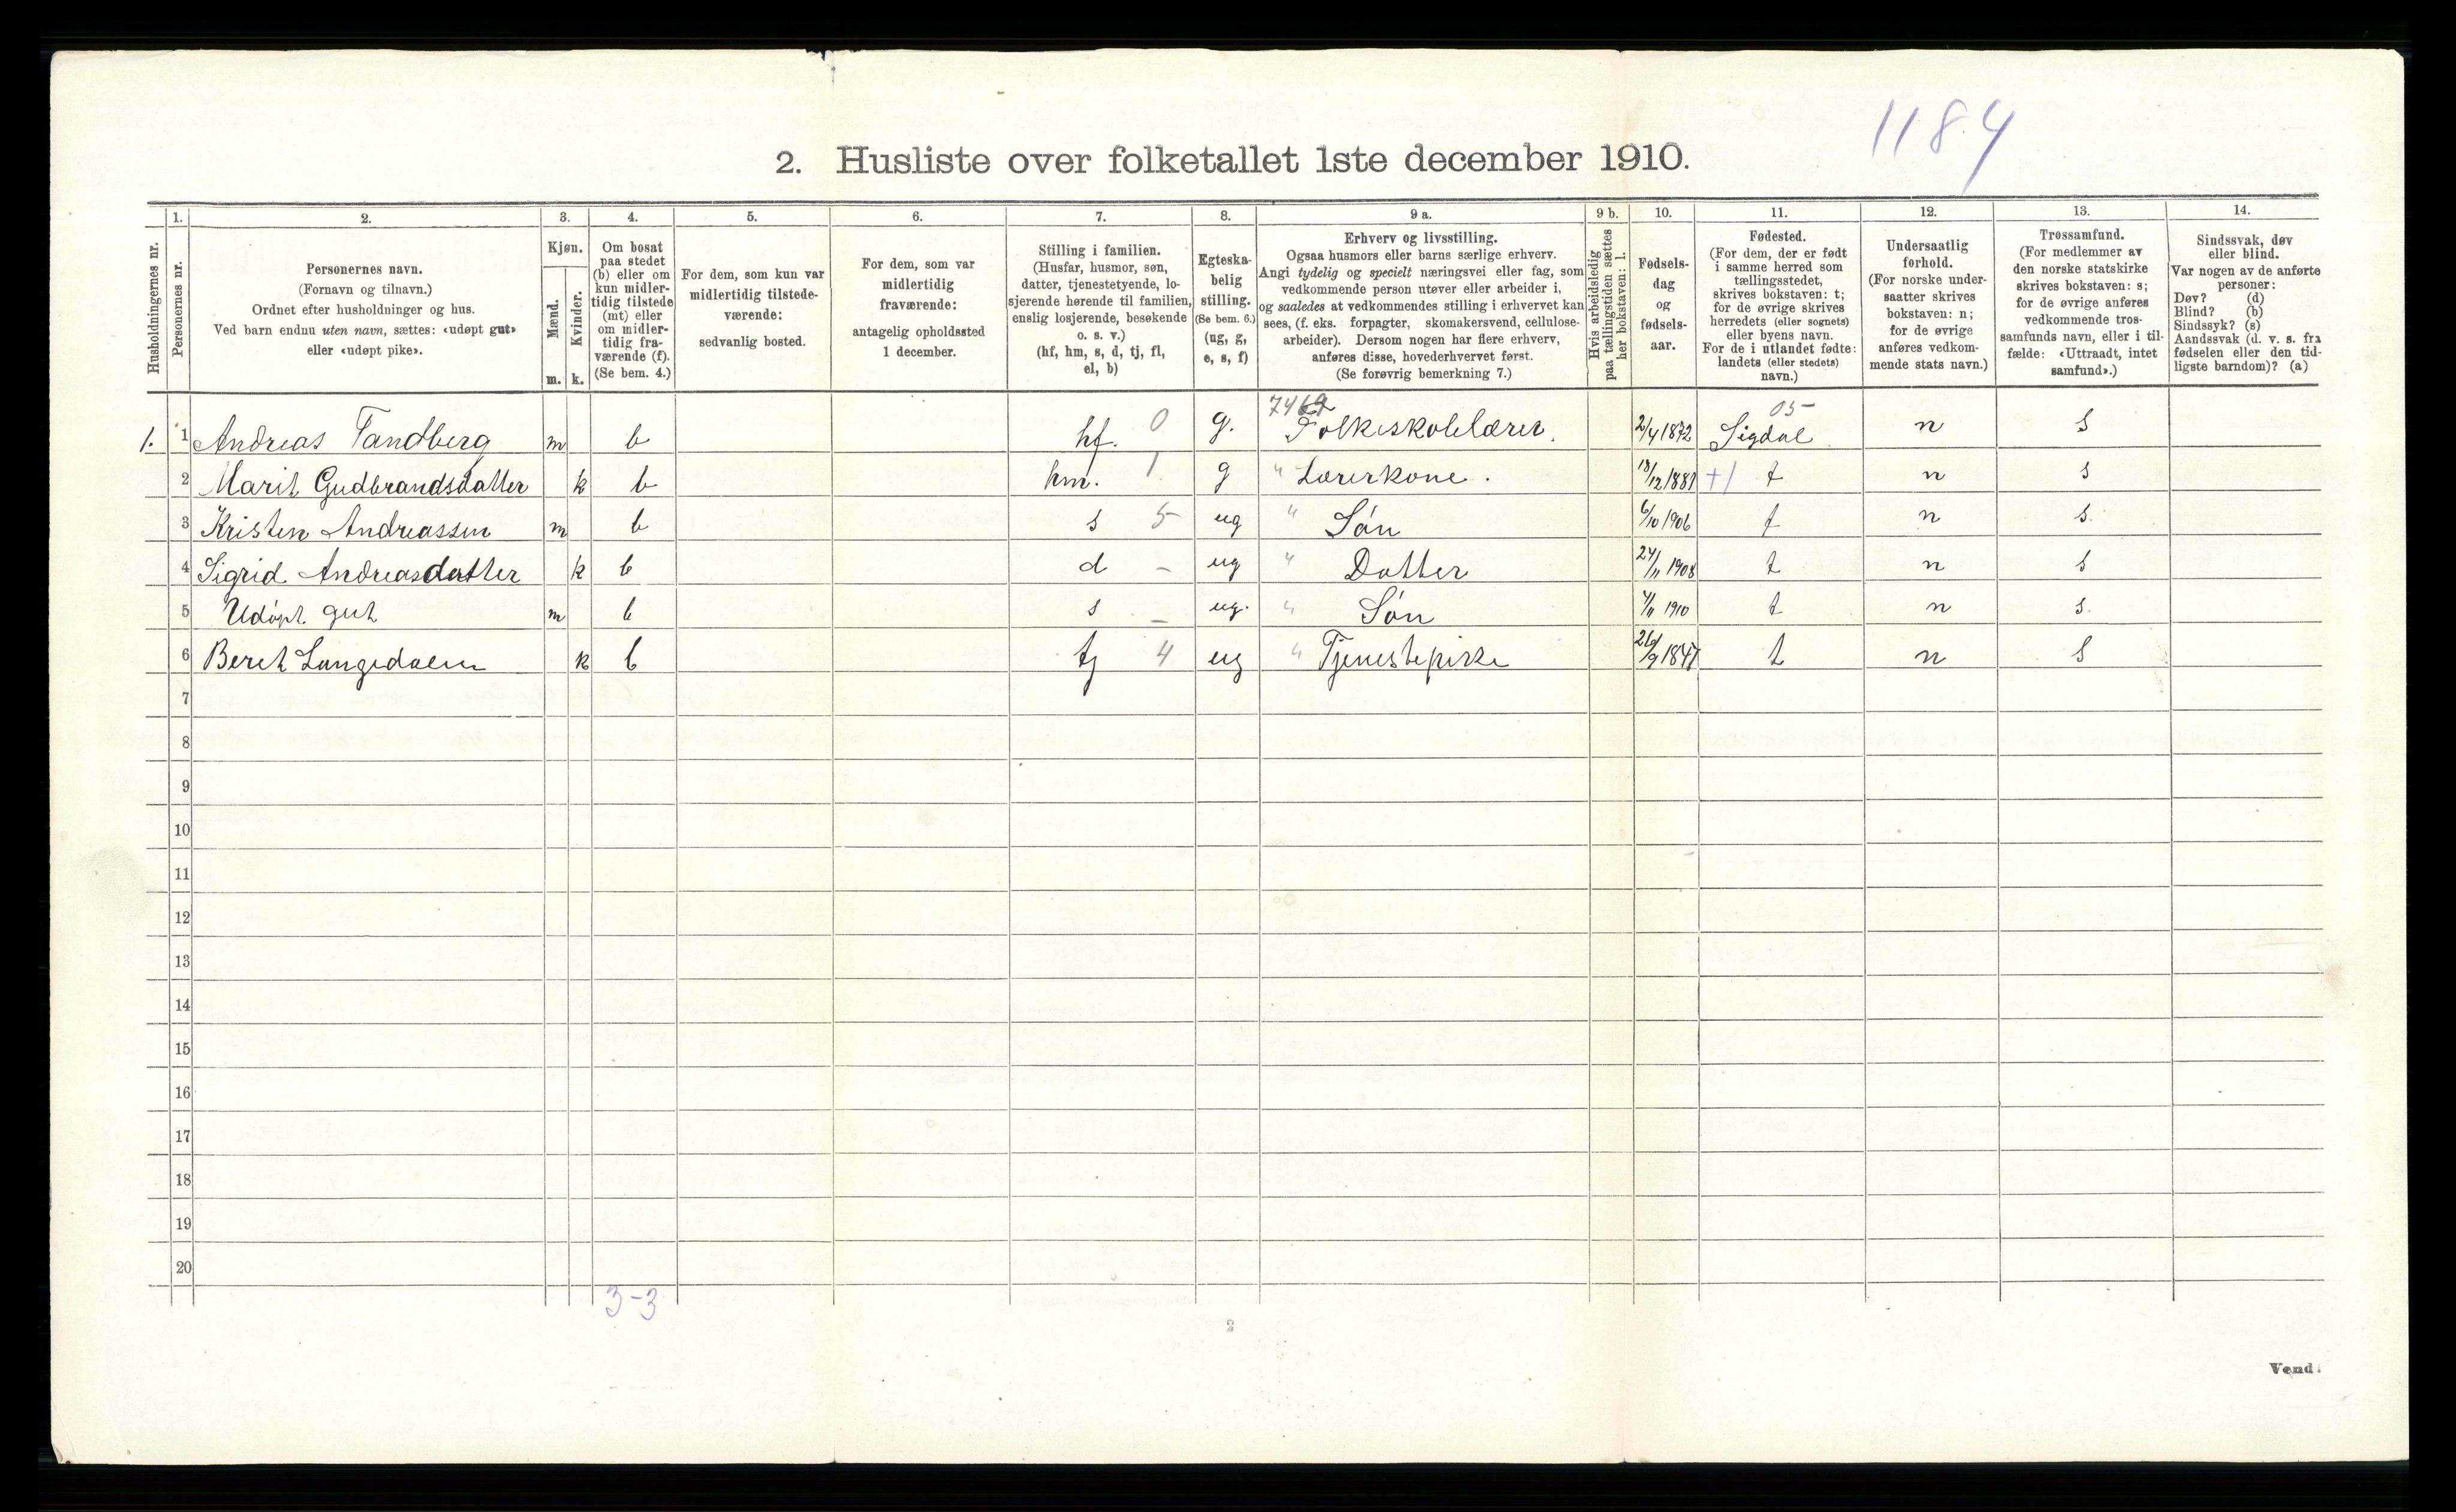 1184
2. Husliste over folketallet 1ste december 1910.
Husholdningernes nr.
1.
Personernes nr.
2.
Personernes navn.
(Fornavn og tilnavn.)
Ordnet efter husholdninger og hus.
Ved barn endnu uten navn, sættes: «udøpt gut»
eller «udøpt pike».
3.
Kjøn.
Mænd.
Kvinder.
m. k.
4.
Om bosat
paa stedet
(b) eller om
kun midler-
tidig tilstede
(mt) eller
om midler-
tidig fra-
værende (f).
(Se bem. 4.)
5.
For dem, som kun var
midlertidig tilstede-
værende:
sedvanlig bosted.
6.
For dem, som var
midlertidig
fraværende:
antagelig opholdssted
1 december.
7.
Stilling i familien.
(Husfar, husmor, søn,
datter, tjenestetyende, lo-
sjerende hørende til familien,
enslig losjerende, besøkende
o. s. v.)
(hf, hm, s, d, tj, fl,
el, b)
8.
Egteska-
belig
stilling.
(Se bem. 6.)
(ug, g,
e, s, f)
9 a.
Erhverv og livsstilling.
Ogsaa husmors eller barns særlige erhverv.
Angi tydelig og specielt næringsvei eller fag, som
vedkommende person utøver eller arbeider i,
og saaledes at vedkommendes stilling i erhvervet kan
sees, (f. eks. forpagter, skomakersvend, cellulose-
arbeider). Dersom nogen har flere erhverv,
anføres disse, hovederhvervet først.
(Se forøvrig bemerkning 7.)
9 b.
Hvis arbeidsledig
paa tællingstiden sættes
her bokstaven: l.
10.
Fødsels-
dag
og
fødsels-
aar.
11.
Fødested.
(For dem, der er født
i samme herred som
tællingsstedet,
skrives bokstaven: t;
for de øvrige skrives
herredets (eller sognets)
eller byens navn.
For de i utlandet fødte:
landets (eller stedets)
navn.)
12.
Undersaatlig
forhold.
(For norske under-
saatter skrives
bokstaven: n;
for de øvrige
anføres vedkom-
mende stats navn.)
13.
Trossamfund.
(For medlemmer av
den norske statskirke
skrives bokstaven: s;
for de øvrige anføres
vedkommende tros-
samfunds navn, eller i til-
fælde: «Uttraadt, intet
samfund».)
14.
Sindssvak, døv
eller blind.
Var nogen av de anførte
personer:
Døv? (d)
Blind? (b)
Sindssyk? (s)
Aandssvak (d. v. s. fra
fødselen eller den tid-
ligste barndom)? (a)
05
1. 1 Andreas Tandberg m b hf. 0 g. Folkeskolelærer. 2/4 1872 Sigdal n s
2 Marit Gudbrandsdatter k b hm. 1 g " Lærerkone. 18/12 1881 +1 t n s
3 Kristen Andreassen m b s 5 ug " Søn 6/10 1906 t n s.
4 Sigrid Andreasdatter k b d - ug " Datter 24/11 1908 t n s
5 Udøpt gut m b s - ug. " Søn 4/11 1910 t n s.
6 Berit k b tj 4 ug " Tjenestepike t n s
7
8
9
10
11
12
13
14
15
16
17
18
19
20
3-3
2
Vend.